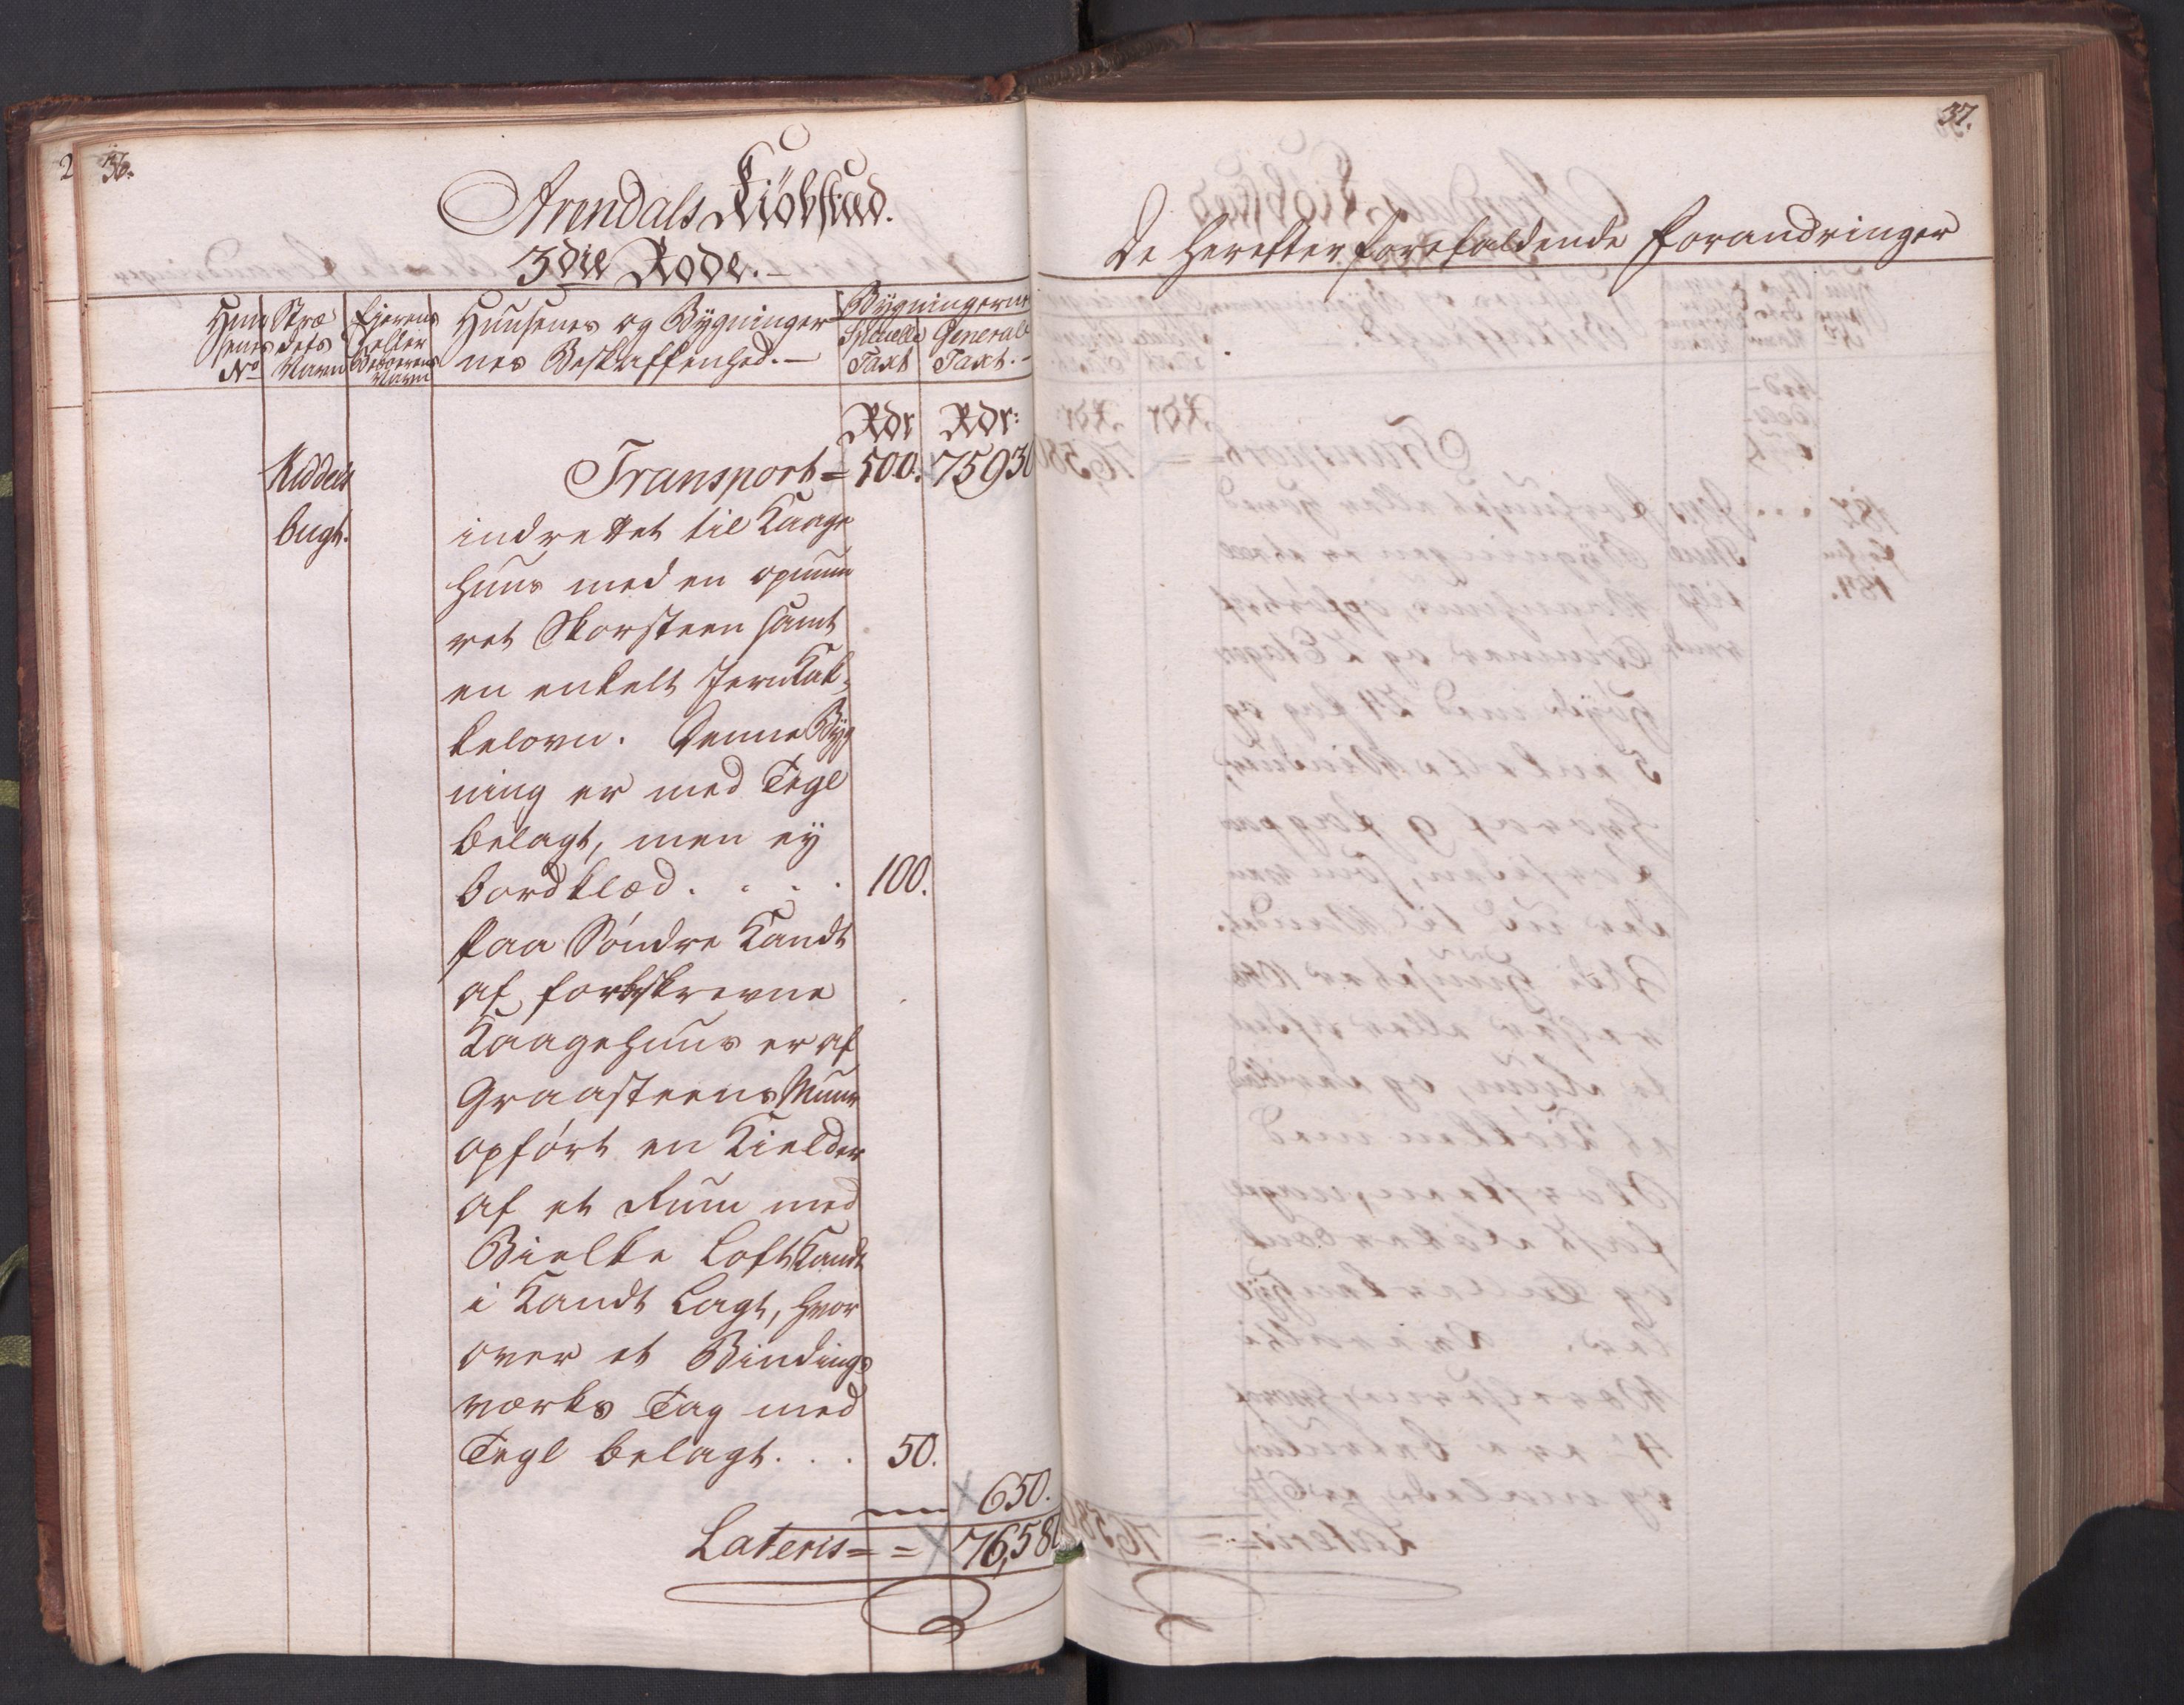 36.
Arendals Kiøbstad.
3die Rode.
Huu
senes
No
Stræ
dets
Navn
Ejerens
eller
Beboerens
Navn
Huusenes og Bygninger
nes Beskaffenhed.
Bygningernes
Specielle
Taxt
Generale
Taxt.
Rdr Rdr:
Kiddels Transport = 500. 75930
bugt. indrettet til Kaage
huus med en opmuu
ret Skorsteen samt
en enkelt Jernkak-
kelovn. Denne Byg
ning er med Tegl
belagt, men ey
bordklæd . . . . 100.
Paa Søndre Kandt
af forbeskrevne
Kaagehuus er af
Graasteens Muur
opført en Kielder
af et Rum med
Bielke Loft Kandt
i Kandt lagt, hvor
over et Bindings
værks Tag med
Tegl belagt . . . 50.
650.
Lateris = = 76,580
37.
De herefter forefaldende Forandringer